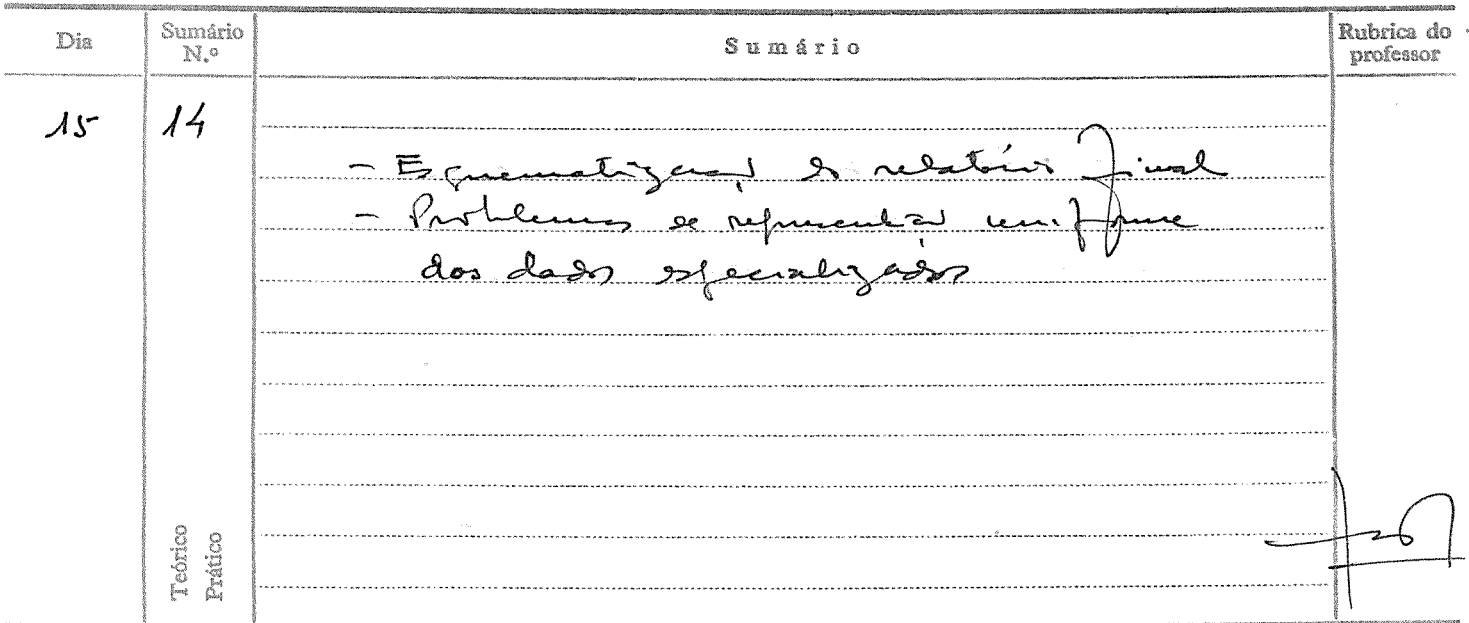 Dia
Sumário N.º
Sumário
Rubrica do professor
15
14
- Esquematização do relatório final
- Problemas de representação uniforme
dos dados especializados
Teórico
Prático